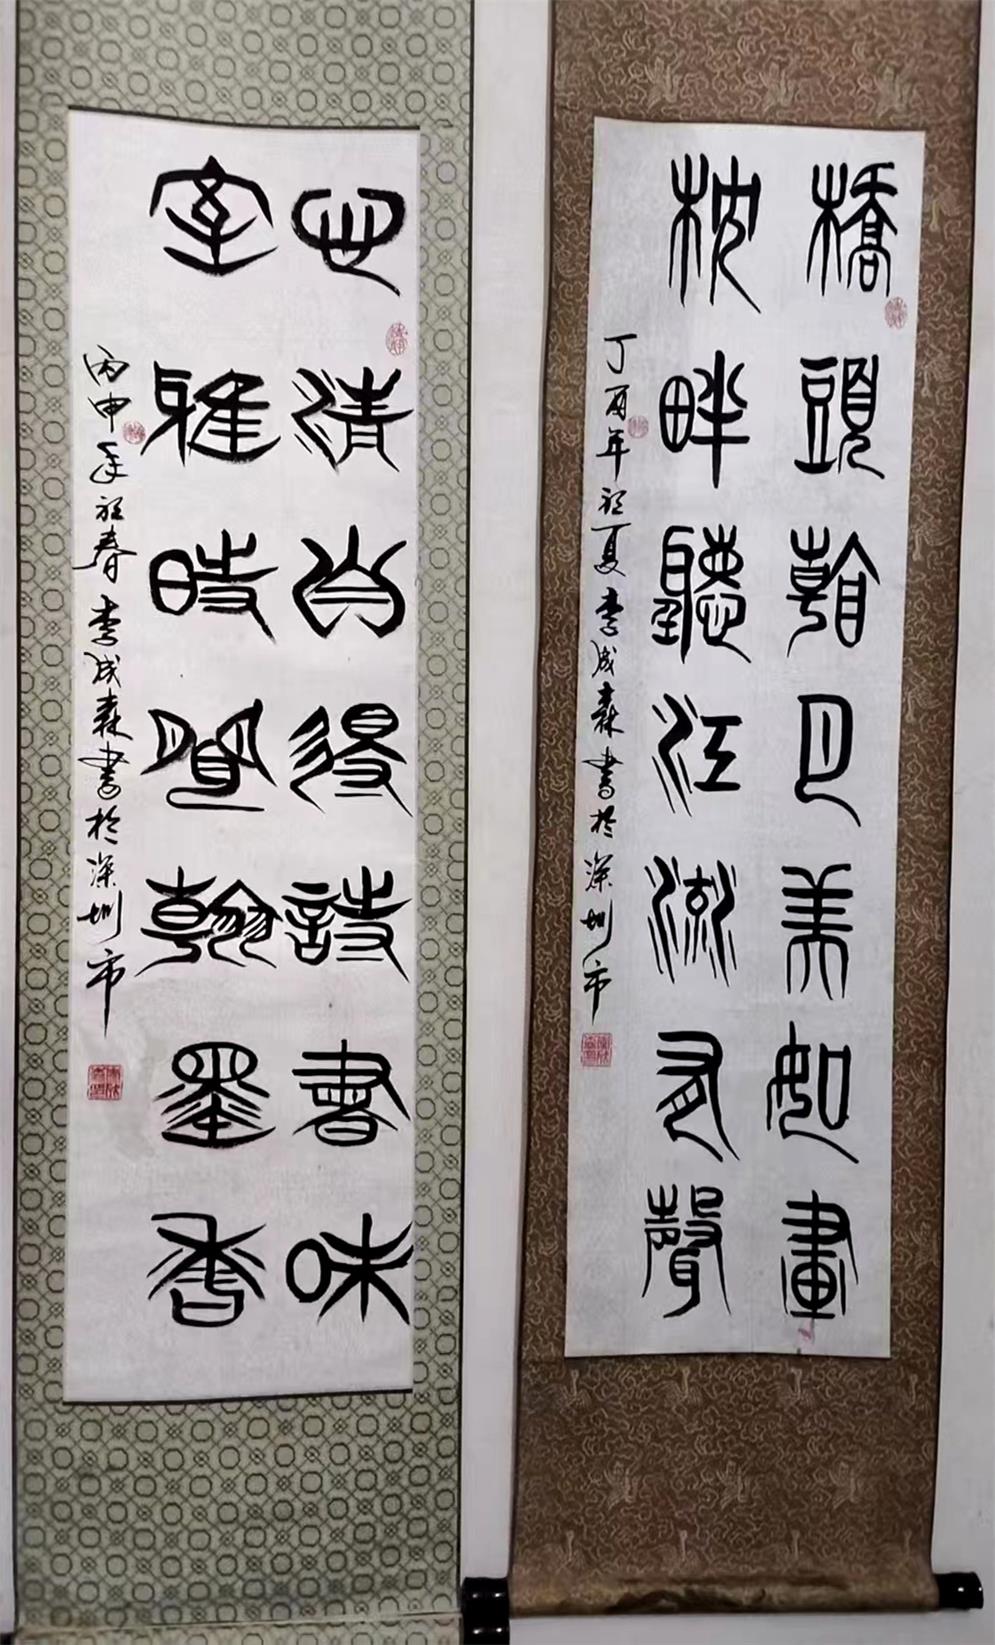 橋頭看月美如畫
枕畔聽江流有聲
丁酉年初夏李成森書於深圳市
心清自得詩書味
室雅時聞翰墨香
丙申年初春李成森書於深圳市